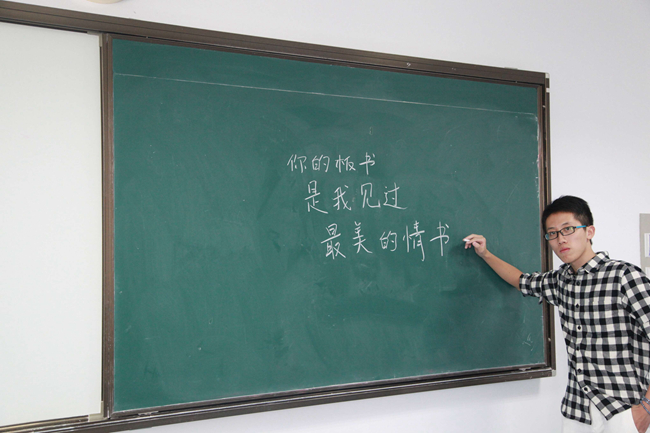 你的板书
是我见过
最美的情书